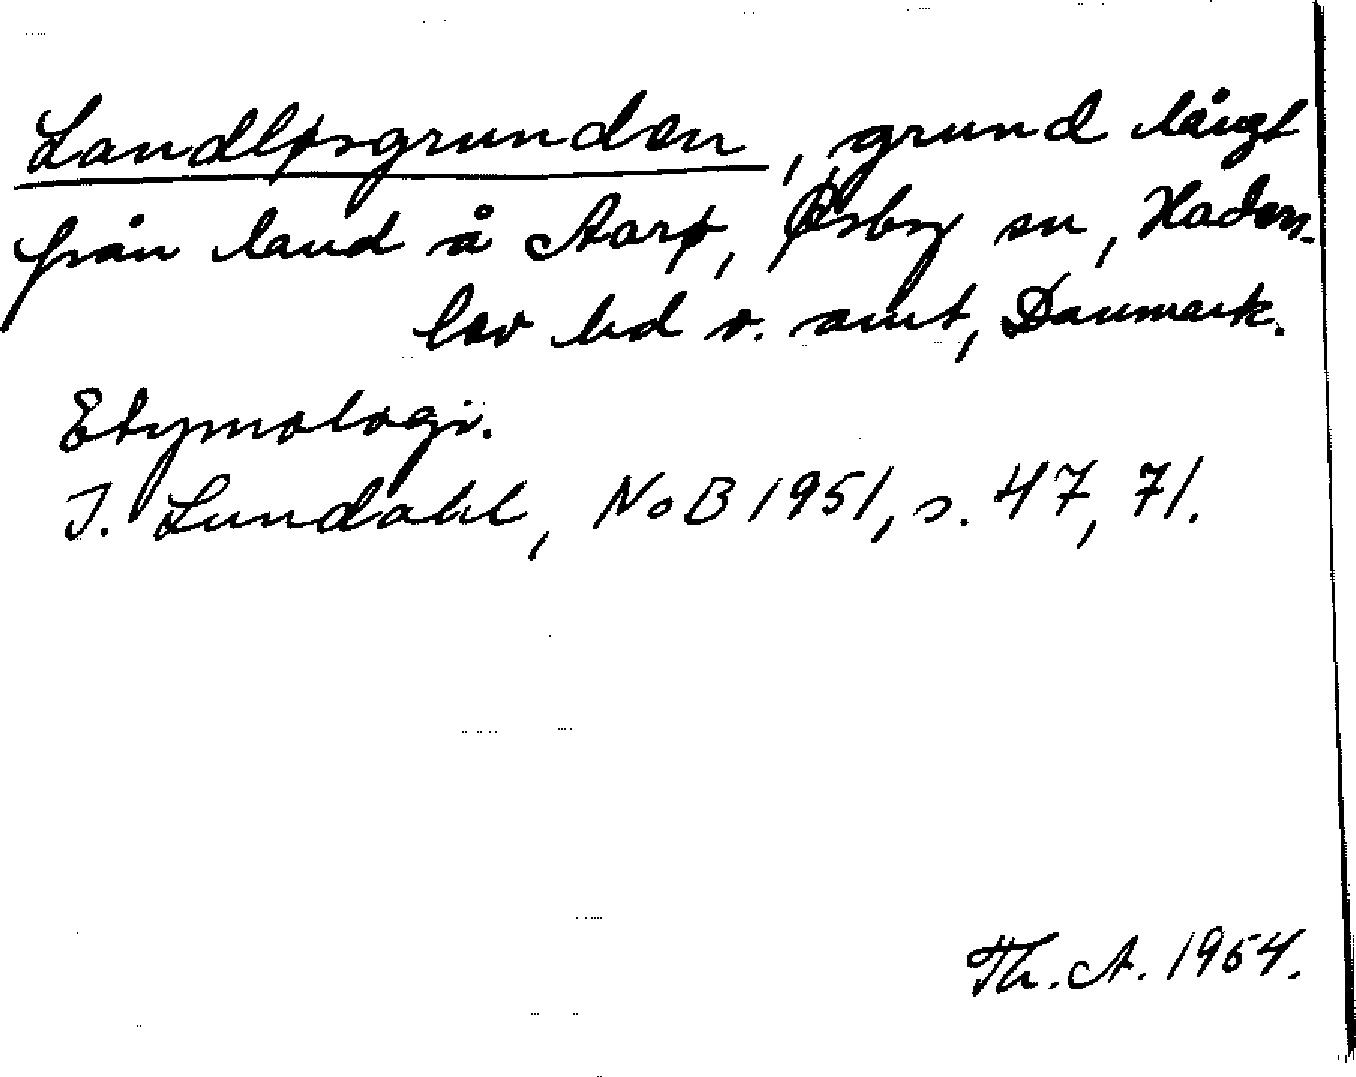 Landløsgrunden, grund långt
från land å Aarø, Øsby sn, Haders-
lev hd o. amt, Danmark.
Etymologi.
I. Lundahl, NoB 1951, s. 47, 71.
Th. A. 1954.